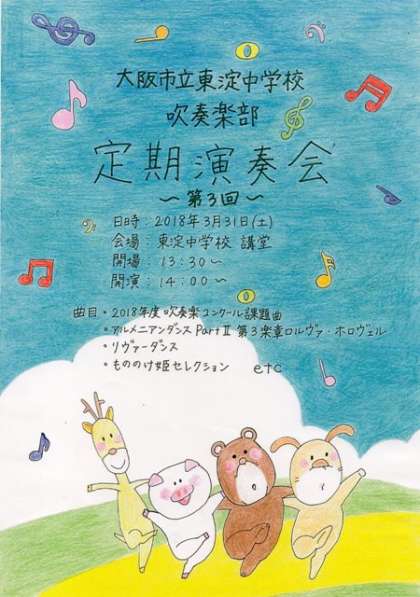 大阪市立東淀中学校
吹奏楽部
定期演奏会
～第3回～
日時：2018年3月31日(土)
会場：東淀中学校 講堂
開場：13:30～
開演：14:00～
曲目・2018年度 吹奏楽コンクール課題曲
・アルメニアンダンス Part Ⅱ 第3楽章ロルヴァ・ホロヴェル
・リヴァーダンス
・もののけ姫セレクション etc